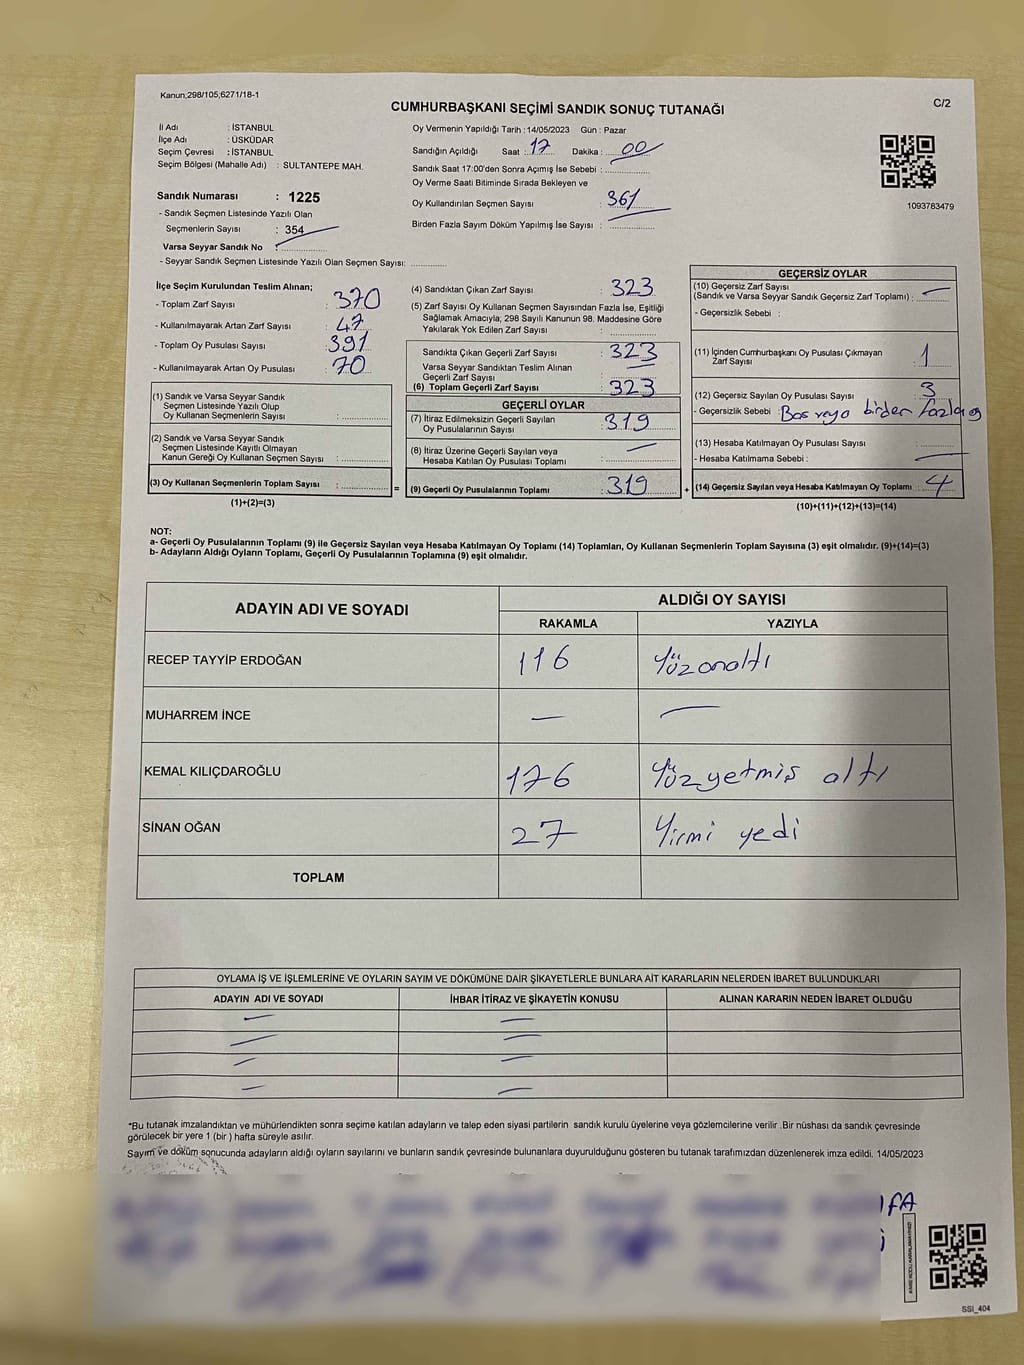 Kanun;298/105,6271/18-1
CUMHURBAŞKANI SEÇİMİ SANDIK SONUÇ TUTANAĞI
C/2
İl Adı : İSTANBUL
İlçe Adı : ÜSKÜDAR
Seçim Çevresi : İSTANBUL
Seçim Bölgesi (Mahalle Adı) : SULTANTEPE MAH.
Sandık Numarası : 1225
- Sandık Seçmen Listesinde Yazılı Olan
Seçmenlerin Sayısı : 354
Varsa Seyyar Sandık No :
- Seyyar Sandık Seçmen Listesinde Yazılı Olan Seçmen Sayısı:
Oy Vermenin Yapıldığı Tarih : 14/05/2023 Gün : Pazar
Sandığın Açıldığı Saat : 17 Dakika : 00
Sandık Saat 17:00'den Sonra Açımış İse Sebebi :
Oy Verme Saati Bitiminde Sırada Bekleyen ve
Oy Kullandırılan Seçmen Sayısı : 361
Birden Fazla Sayım Döküm Yapılmış İse Sayısı :
1093783479
İlçe Seçim Kurulundan Teslim Alınan;
- Toplam Zarf Sayısı : 370
- Kullanılmayarak Artan Zarf Sayısı : 47
- Toplam Oy Pusulası Sayısı : 391
- Kullanılmayarak Artan Oy Pusulası : 70
(1) Sandık ve Varsa Seyyar Sandık
Seçmen Listesinde Yazılı Olup
Oy Kullanan Seçmenlerin Sayısı :
(2) Sandık ve Varsa Seyyar Sandık
Seçmen Listesinde Kayıtlı Olmayan
Kanun Gereği Oy Kullanan Seçmen Sayısı :
(3) Oy Kullanan Seçmenlerin Toplam Sayısı :
(1)+(2)=(3)
=
(4) Sandıktan Çıkan Zarf Sayısı : 323
(5) Zarf Sayısı Oy Kullanan Seçmen Sayısından Fazla İse, Eşitliği
Sağlamak Amacıyla; 298 Sayılı Kanunun 98. Maddesine Göre
Yakılarak Yok Edilen Zarf Sayısı :
Sandıkta Çıkan Geçerli Zarf Sayısı : 323
Varsa Seyyar Sandıktan Teslim Alınan
Geçerli Zarf Sayısı :
(6) Toplam Geçerli Zarf Sayısı : 323
GEÇERLİ OYLAR
(7) İtiraz Edilmeksizin Geçerli Sayılan
Oy Pusulalarının Sayısı : 319
(8) İtiraz Üzerine Geçerli Sayılan veya
Hesaba Katılan Oy Pusulası Toplamı :
(9) Geçerli Oy Pusulalarının Toplamı : 319
+
GEÇERSİZ OYLAR
(10) Geçersiz Zarf Sayısı
(Sandık ve Varsa Seyyar Sandık Geçersiz Zarf Toplamı) :
- Geçersizlik Sebebi :
(11) İçinden Cumhurbaşkanı Oy Pusulası Çıkmayan
Zarf Sayısı : 1
(12) Geçersiz Sayılan Oy Pusulası Sayısı : 3
- Geçersizlik Sebebi : Boş veya birden fazla
(13) Hesaba Katılmayan Oy Pusulası Sayısı :
- Hesaba Katılmama Sebebi :
(14) Geçersiz Sayılan veya Hesaba Katılmayan Oy Toplamı : 4
(10)+(11)+(12)+(13)=(14)
NOT:
a- Geçerli Oy Pusulalarının Toplamı (9) ile Geçersiz Sayılan veya Hesaba Katılmayan Oy Toplamı (14) Toplamları, Oy Kullanan Seçmenlerin Toplam Sayısına (3) eşit olmalıdır. (9)+(14)=(3)
b- Adayların Aldığı Oyların Toplamı, Geçerli Oy Pusulalarının Toplamına (9) eşit olmalıdır.
ADAYIN ADI VE SOYADI
ALDIĞI OY SAYISI
RAKAMLA YAZIYLA
RECEP TAYYİP ERDOĞAN 116 Yüzonaltı
MUHARREM İNCE — —
KEMAL KILIÇDAROĞLU 176 Yüzyetmiş altı
SİNAN OĞAN 27 Yirmi yedi
TOPLAM
OYLAMA İŞ VE İŞLEMLERİNE VE OYLARIN SAYIM VE DÖKÜMÜNE DAİR ŞİKAYETLERLE BUNLARA AİT KARARLARIN NELERDEN İBARET BULUNDUKLARI
ADAYIN ADI VE SOYADI İHBAR İTİRAZ VE ŞİKAYETİN KONUSU ALINAN KARARIN NEDEN İBARET OLDUĞU
*Bu tutanak imzalandıktan ve mühürlendikten sonra seçime katılan adayların ve talep eden siyasi partilerin sandık kurulu üyelerine veya gözlemcilerine verilir .Bir nüshası da sandık çevresinde
görülecek bir yere 1 (bir ) hafta süreyle asılır.
Sayım ve döküm sonucunda adayların aldığı oyların sayılarını ve bunların sandık çevresinde bulunanlara duyurulduğunu gösteren bu tutanak tarafımızdan düzenlenerek imza edildi. 14/05/2023
SSI_404